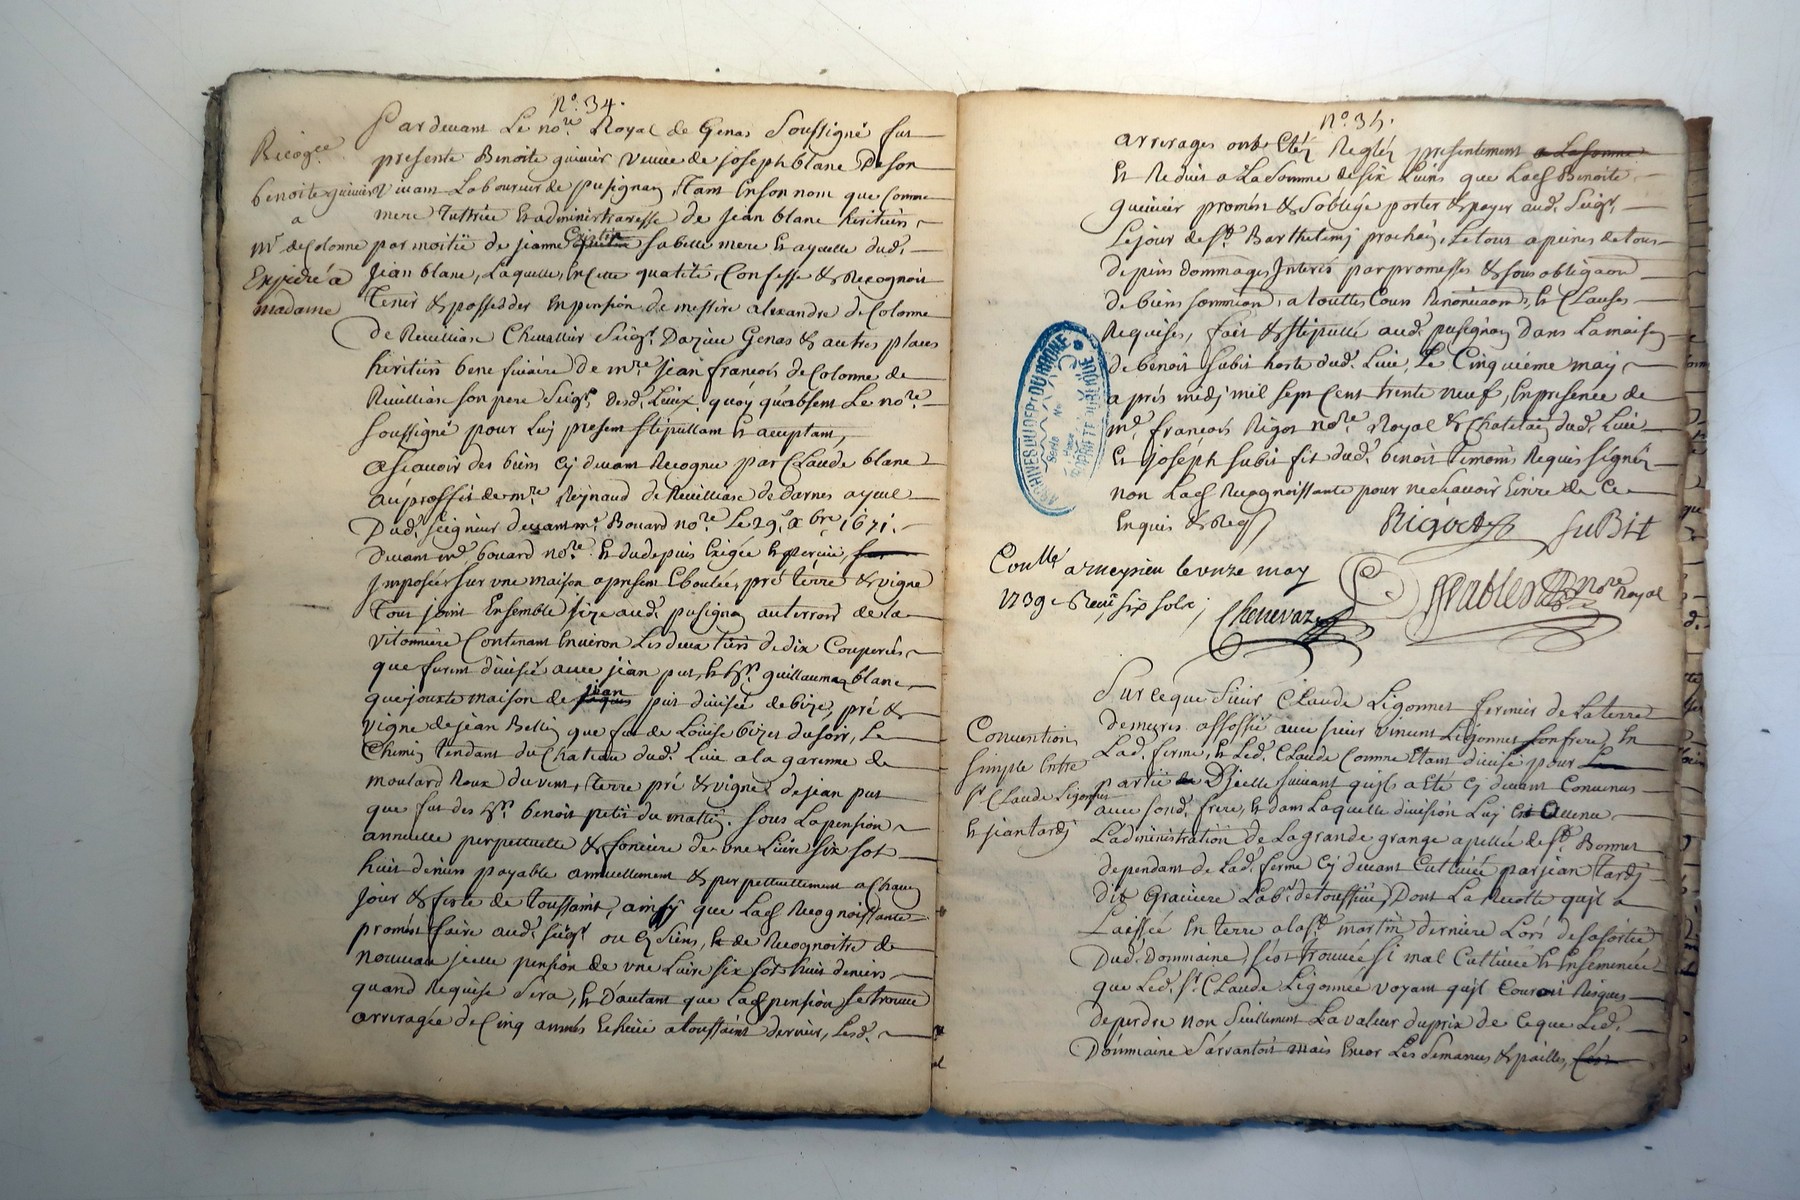 N.º 34.
Pardevant Le no.re Royal de Genas Soussigné fut
presente Benoite guinier veuve de joseph blanc De son
vivant Laboureur de pusignan, tant en son nom que comme
mere Tutrice et administraresse de jean blanc heritiers
par moitié de jeanne sa belle mere et ayeulle dud.
jean blanc, Laquelle, en Cette qualité, Confesse & Recognoit
Tenir & possedder en pension de messire alexandre de Colonne
de Reuilliasc Chevallier Seigr. Dazieu Genas & autres places
heritier bene ficiaire De m.re jean francois de Colonne de
Reuilliasc son pere Seigr. desd. Lieux, quoy qu'absent Le no.re
soussigné pour Luy present stipullant et acceptant,
asscavoir des biens cy devant Recognu par Claude blanc
au proffit de m.re Reynaud de Reuilliasc de darnes ayeul
Dud. seigneur devant m.e Bouard no.re Le 29.e xbre 1671.
Devant m.e bouard no.re et dudepuis Exigée et perçüe,
jmposée sur vne maison a present Eboulée, pré terre & vigne
Tout joint Ensemble size aud. pusignan au terroir de la
vitonniere Contenant environ Les deux tiers de dix Couperées
que furent divisés avec jean put, et hrs. guillaume blanc
que jouxte maison de jean put divisée de bize, pré &
vigne de jean Bellin que fut de Louise bizet du soir, Le
Chemin tendant du Chateau dud. Lieu a la garenne de
moulard Roux du vent, terre pré & vigne de jean put
que fut des hrs. benoit petit du matin. sous La pension
annuelle perpettuelle & fonciere de vne Livre six sol
huit deniers payable annuellement & perpettuellement a Chaq
jour & feste de toussaint, ainsy que Lad. Recognoissante
promet faire aud. seigr. ou ès siens, et de Recognoitre de
nouveau jcelle pension de vne Livre six sols huit deniers
quand Requise sera, et D'autant que Lad. pension se trouve
arreragée de Cinq années Echües a toussaint dernier, Lesd.
Recog.ce
benoite guinier
a
M.r de Colonne
Expedié a
madame
N.º 35.
arrerages ont Etéz Regléz presentement a La somme
et Reduit a La Somme de six Livres que Lad. Benoite
guinier promet & s'oblige porter & payer aud. Seigr.
Le jour de St. Barthelemy prochain, Le tout a peines de tous
depens dommages Interes par promesses & sous obligaon
de biens soumission, a touttes Cours Renonciaons, et Clauses
Requises, fait & stipullé aud. pusignan dans La maison
de benoit subit hoste dud. Lieu, Le Cinquieme may
apres midy mil sept Cent trente neuf, en presence de
m.e francois Rigot no.re Royal & Chatelain dud. Lieu
et joseph subit fils dud. benoit temoins Requis signéz
non Lad. Recognoissante pour ne sçavoir Ecrire de Ce
Enquis & Req.
Rigot
Subit
Conllé a meyzieu le onze may
1739. Receu six sols
Chenevaz
no.re Royal
ARCHIVES DU DEPt DU RHONE
Sur ce que Sieur Claude Ligonnet fermier de La terre
demures associé avec sieur vincent Ligonnet son frere, en
Lad. ferme, et Led. Claude Comme Etant divisé pour
partie D'jcelle suivant qu'ils a Eté cy devant Convenus
avec sond. frere, et dans Laquelle division Luy
Ladministration de La grande grange apellée de St. Bonnet
dependant de Lad. ferme cy devant Cultivée par jean tardy
dit Graviere Labr. de toussieu, Dont La Recolte qu'jl a
Laissée en terre a la St. martin derniere Lors de sa sortie
Dud. Dommaine s'est trouvée si mal Cultivée et Ensemencée
que Led. Sr. Claude Ligonnet voyant qu'jl Couroit Risques
de perdre non seullement La valeur du prix de Ce que Led.
Dommaine Sarrantoit mais Encor Les semances & pailles,
Convention
simple entre
Sr. Claude Ligonnet
et jean tardy